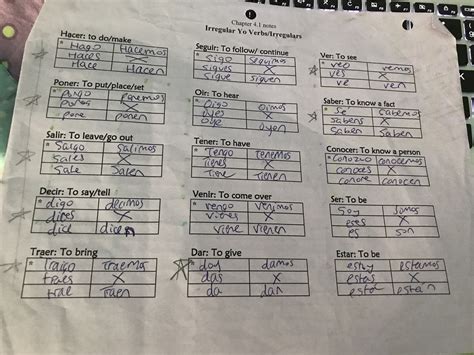 Chapter 4.1 notes
Irregular Yo Verbs/Irregulars
Hacer: to do/make
* Hago Hacemos
Haces X
Hace Hacen
Poner: To put/place/set
* Pongo Ponemos
Pones X
pone ponen
Salir: To leave/go out
* Salgo Salimos
Sales X
Sale Salen
Decir: To say/tell
* digo decimos
dices X
dice dicen
Traer: To bring
* traigo traemos
traes X
trae traen
Seguir: To follow/ continue
* Sigo Seguimos
Sigues X
sigue siguen
Oir: To hear
* Oigo Oimos
Oyes X
Oye Oyen
Tener: To have
* Tengo Tenemos
Tienes X
Tiene Tienen
Venir: To come over
* vengo venimos
vienes X
viene vienen
Dar: To give
* doy damos
das X
da dan
Ver: To see
* veo vemos
ves X
ve ven
Saber: To know a fact
* Se Sabemos
Sabens X
Saben Saben
Conocer: To know a person
* Conozco conocemos
conoces X
conore Conocen
Ser: To be
Soy Somos
eses X
es son
Estar: To be
estoy estamos
estas X
esta estan